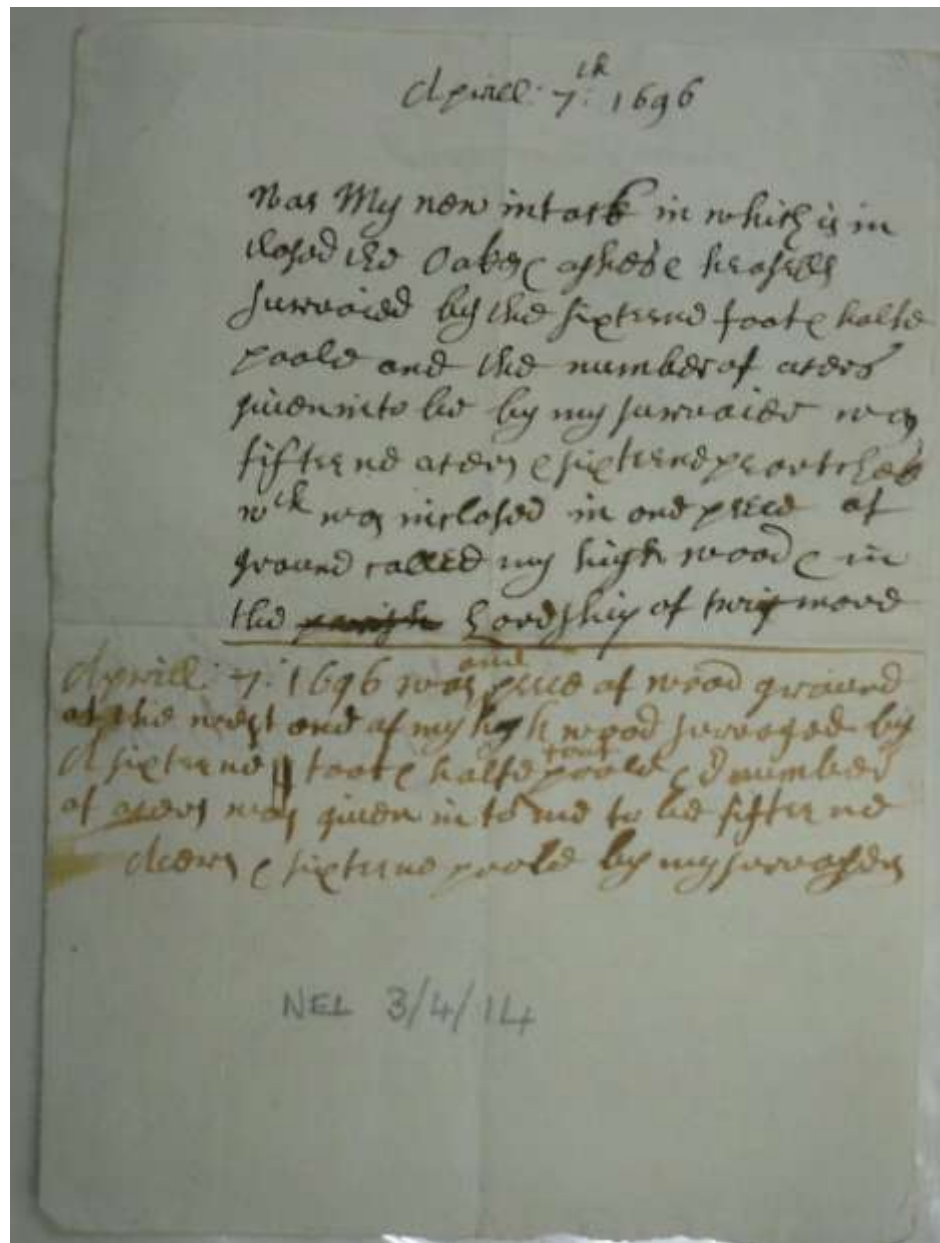 Aprill: 7th: 1696
Was My new intack in which is in
closed the Oakes & ashes & heasells
survaied by the sixteene foot & halfe
poole and the number of acers
given into be by my survaier was
fifteene acers & sixteene peartches
wch was inclosed in one peece of
ground called my high wood & in
the parish Lordship of
Aprill: 7: 1696 was one peece of wood ground
at the west end of my high wood survayed by
A sixteene foot & halfe poole & number
of acers was given in to me to be fifteene
Acers & sixteene poole by my survayer
NEL 3/4/14